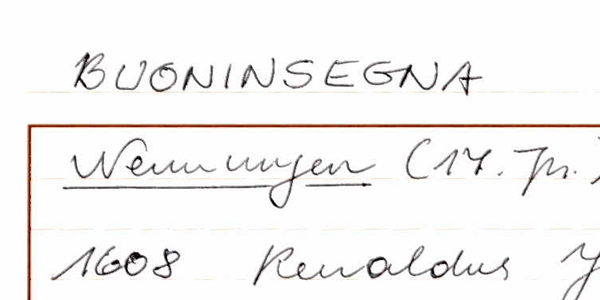 BUONINSEGNA
Nennungen (17. Jh.)
1608 Renaldus